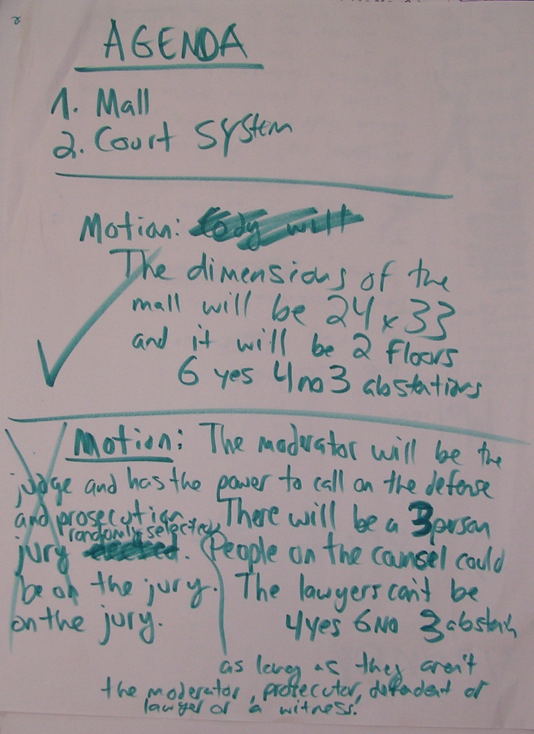 AGENDA
1. Mall
2. Court System
Motion:
The dimensions of the
mall will be 24 x 33
and it will be 2 floors
6 yes 4 no 3 abstations
Motion: The moderator will be the
judge and has the power to call on the defense
and prosecution. There will be a 3 person
randomly selected
jury. (People on the counsel could
be on the jury. The lawyers can't be
on the jury. 4 yes 6 No 3 abstain
as long as they aren't
the moderator, prosecutor, defendent or
lawyer or a witness.